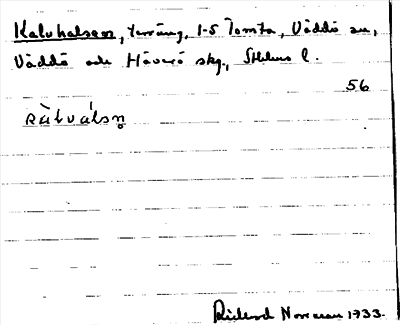 Kalvhalsen, terräng, 1-5 Tomta, Väddö sn,
Väddö och Häverö skg., Sthlms l.
56
Rickard Norrman 1933.